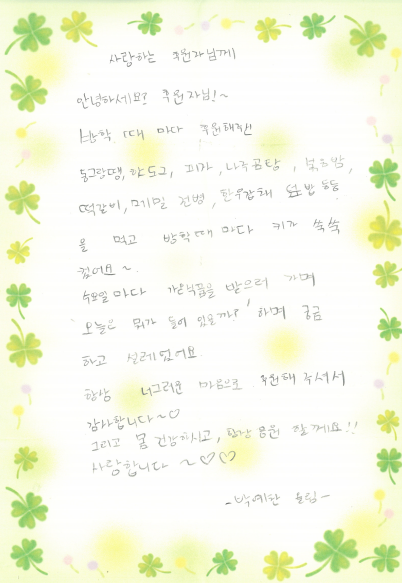 사랑하는 후원자님께
안녕하세요? 후원자님!~
방학 때 마다 후원해주신
동그랑땡, 핫도그, 피자, 나주곰탕, 볶음밥,
떡갈비, 메밀 전병, 한우잡채 등
을 먹고 방학때 마다 키가 쑥쑥
컸어요~.
수요일마다 받으러 가며
오늘은 뭐가 들어 있을까? 하며 궁금
하고 설레었어요.
항상 너그러운 마음으로 후원해 주셔서
감사합니다~♡
그리고 몸 건강하시고, 항상 응원 할게요!!
사랑합니다 ~♡♡
-박예찬 올림-